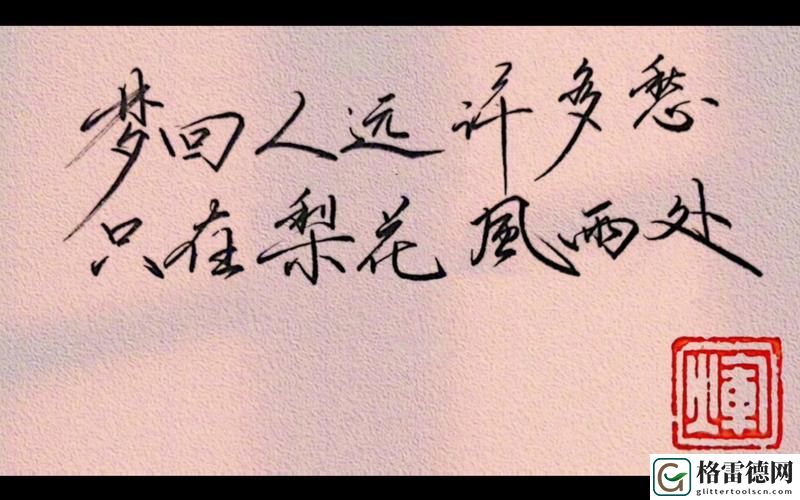 梦回人远许多愁
只在梨花風雨处
輝
格雷德网
glittertoolscn.com